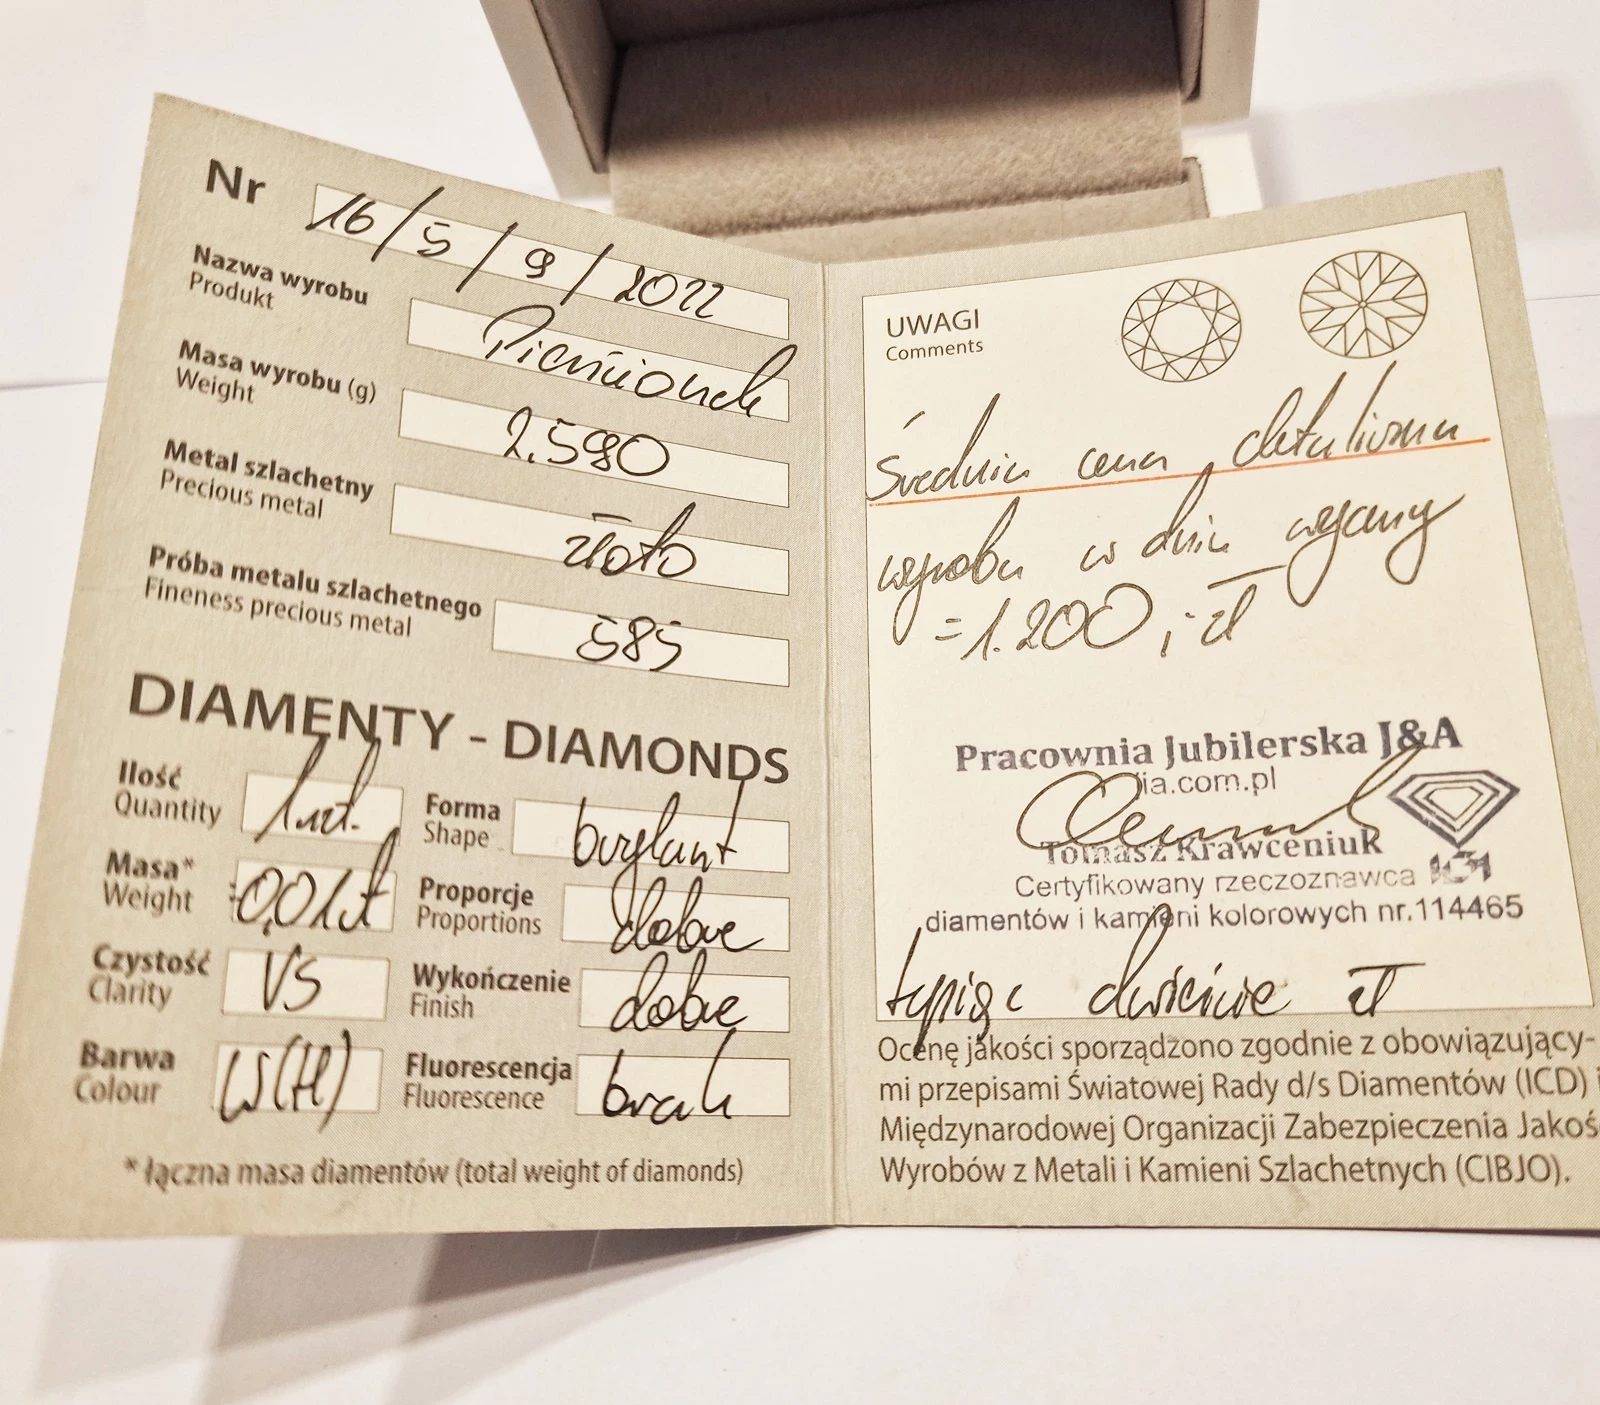 Nr 16/5/9/2022
Nazwa wyrobu Pierścionek
Produkt
Masa wyrobu (g) 2.590
Weight
Metal szlachetny złoto
Precious metal
Próba metalu szlachetnego 585
Fineness precious metal
DIAMENTY - DIAMONDS
Ilość 1 szt. Forma brylant
Quantity Shape
Masa* 0,01ct Proporcje dobre
Weight Proportions
Czystość VS Wykończenie dobre
Clarity Finish
Barwa (H) Fluorescencja brak
Colour Fluorescence
* łączna masa diamentów (total weight of diamonds)
UWAGI
Comments
Średnia cena detaliczna
wyrobu w dniu wyceny
=1.200,- zł
Pracownia Jubilerska J&A
jia.com.pl
Tomasz Krawceniuk
Certyfikowany rzeczoznawca
diamentów i kamieni kolorowych nr.114465
tysiąc dwieście zł
Ocenę jakości sporządzono zgodnie z obowiązujący-
mi przepisami Światowej Rady d/s Diamentów (ICD) i
Międzynarodowej Organizacji Zabezpieczenia Jakoś
Wyrobów z Metali i Kamieni Szlachetnych (CIBJO).